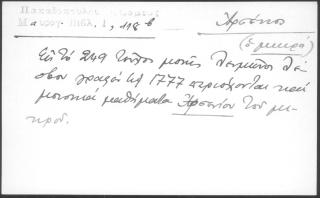 Παπαδοπούλου Κεραμέως
Μαυρογ. Βιβλ. 1, 118 β
Ἀρσένιος
(ὁ μικρός)
Εἰς τὸ 249 τεῦχος μονῆς Λειμῶνος Λέ-
σβου γραφὲν 1777 περιέχονται καὶ
μουσικὰ μαθήματα Ἀρσενίου τοῦ μι-
κροῦ.